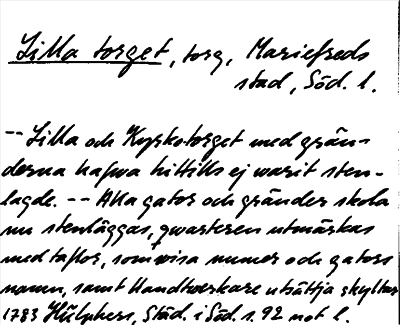 Lilla torget, torg, Mariefreds
stad, Söd. l.
-- Lilla och Kyrkotorget med grän-
derna hafwa hittills ej warit sten-
lagde. -- Alla gator och gränder skola
nu stenläggas, qwarteren utmärkas
med taflor, som wisa numer och gators
namn, samt Handtwerkare utsättja skyltar
1783 Hülphers, Städ. i Söd. s. 92 not l.